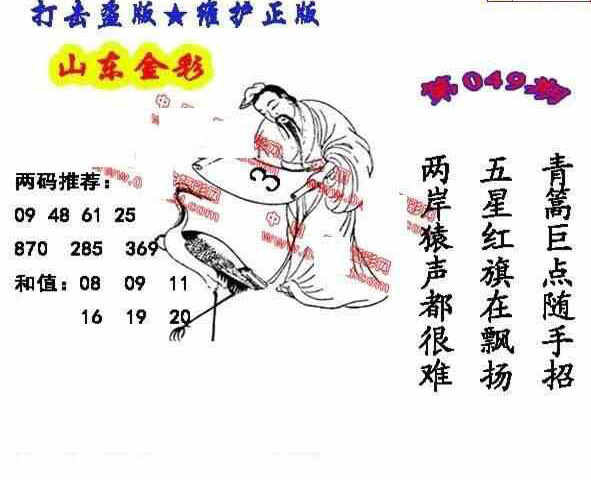 打击盗版★维护正版
山东金彩
第049期
两码推荐：
09 48 61 25
870 285 369
和值：08 09 11
16 19 20
3
中
www.
.com
中
www.
.com
青篙巨点随手招
五星红旗在飘扬
两岸猿声都很难